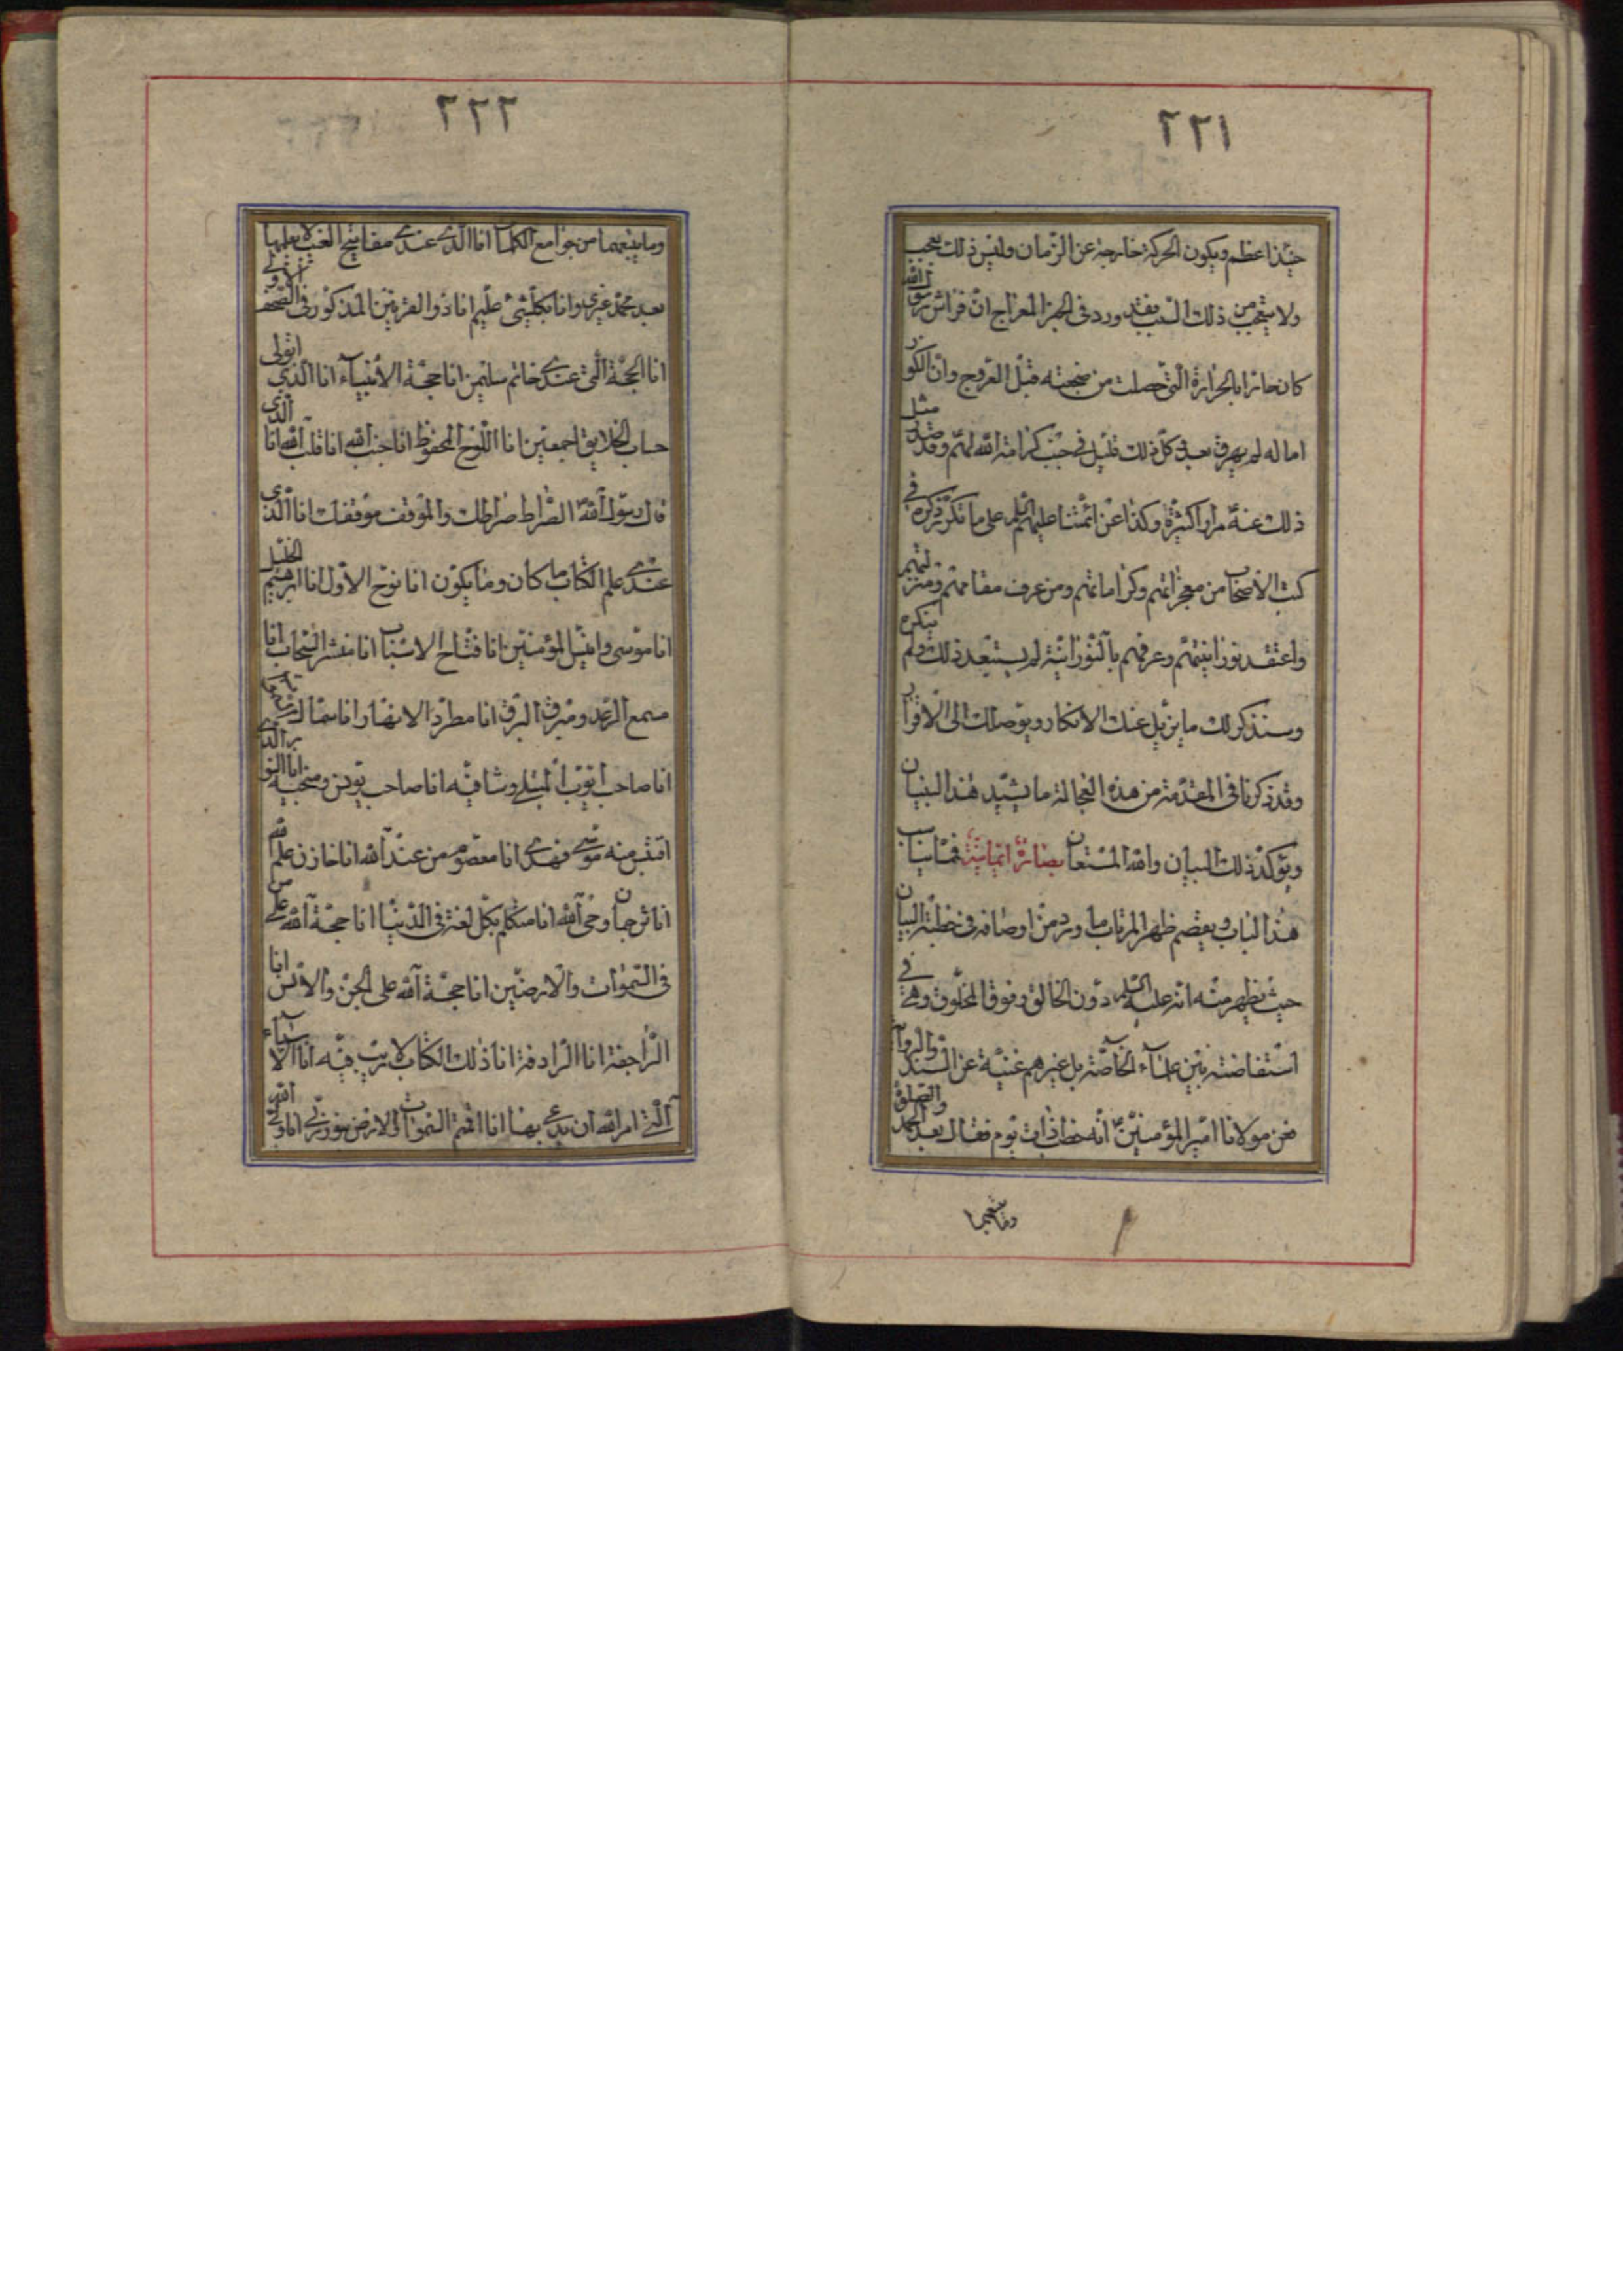 ٢٢١
حينئذ اعظم ويكون الحركة خارجة عن الزمان وليس ذلك بعجب
ولا يتعجب من ذلك السبب فقد ورد في الخبر المعراج ان فراش رسول الله
كان حارا بالحرارة التي حصلت من ضجعته قبل العروج وان الكوز
اماله لم يهرق بعد في كل ذلك قليل في جنب كرامة الله لهم وقد صدر مثل
ذلك عنه مرارا كثيرة وكذا عن ائمتنا عليهم السلم على ما تكرر ذكره في
كتب الاصحاب من معجزاتهم وكراماتهم ومن عرف مقامهم ومنزلتهم
واعتقد نورانيتهم وعرفهم بالنورانية لم يستبعد ذلك ولم ينكره
وسنذكر لك ما يزيل عنك الانكار ويوصلك الى الاقرار
وقد ذكرنا في المقدمة من هذه العجالة ما يشيد هذا البنيان
ويؤكد ذلك البيان والله المستعان بصائر ايمانية فمما يناسب
هذا الباب ويقصم ظهر المرتاب ما ورد من اوصافه في خطبة البيان
حيث يظهر منه انه عليه السلم دون الخالق وفوق المخلوق وهي في
استفاضته بين علماء الخاصة بل غيرهم غنية عن السند والرواة
فعن مولانا امير المؤمنين انه خطب ذات يوم فقال بعد الحمد والصلوة
وما يتبعهما
٢٢٢
وما يتبعهما من جوامع الكلمات انا الذي عندي مفاتيح الغيب لا يعلمها
بعد محمد غيري وانا بكل شئ عليم انا ذو القرنين المذكور في الصحف الاولى
انا الحجة التي عندي خاتم سليمن انا حجة الانبياء انا الذي اتولى
حساب الخلايق اجمعين انا اللوح المحفوظ انا جنب الله انا قلب الله انا الذي
قال رسول الله الصراط صراطك والموقف موقفك انا الذي
عندي علم الكتاب ما كان وما يكون انا نوح الاول انا ابرهيم الخليل
انا موسى وانيس المؤمنين انا فتاح الاسباب انا منشر السحاب انا
مسمع الرعد ومبرق البرق انا مطرد الانهار انا سماك
انا صاحب ايوب المبتلي وشافيه انا صاحب يونس ومنجيه انا النور الذي
اقتبس منه موسى فهدي انا معصوم من عند الله انا خازن علم الله
انا ترجمان وحي الله انا متكلم بكل لغة في الدنيا انا حجة الله على من
في السموات والارضين انا حجة الله على الجن والانس انا
الراجفة انا الرادفة انا ذلك الكتاب لا ريب فيه انا الاسماء
التي امر الله ان يدعى بها انا اقيم السموات والارض بنور ربي انا ولي الله